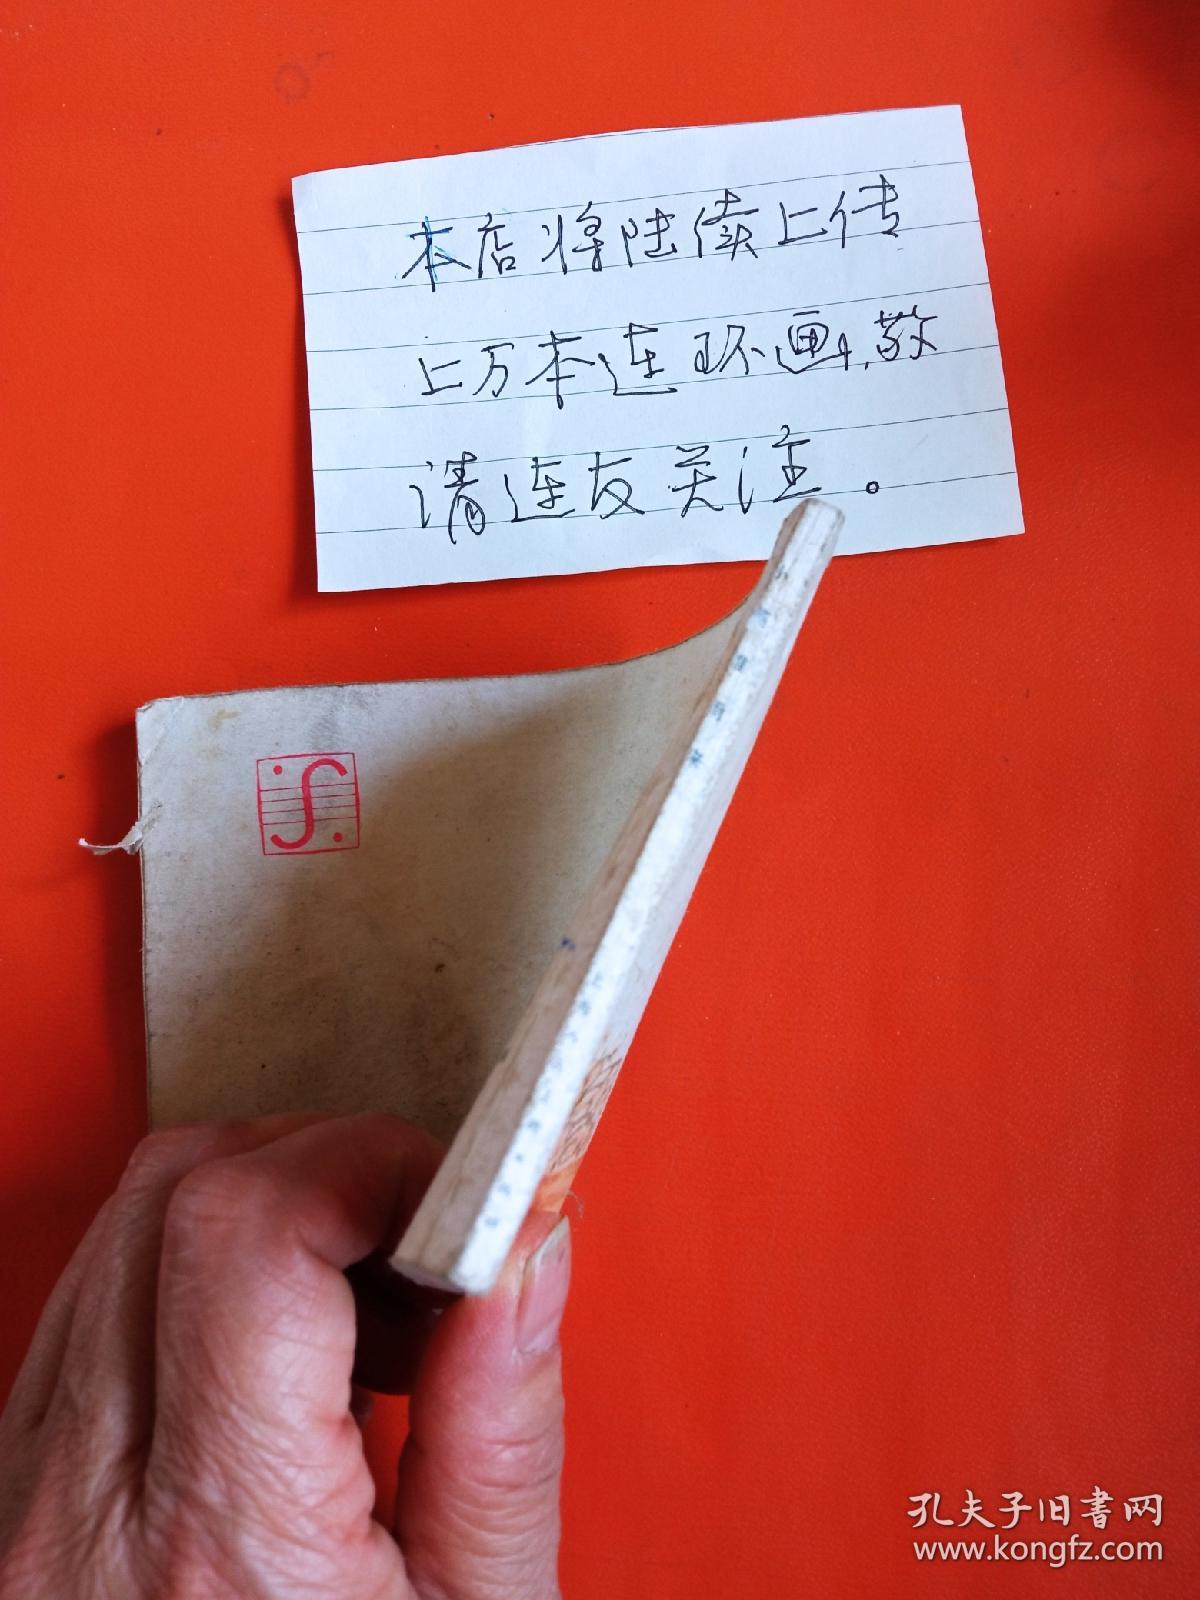 本店将陆续上传
上万本连环画，敬
请连友关注。
孔夫子旧書网
www.kongfz.com